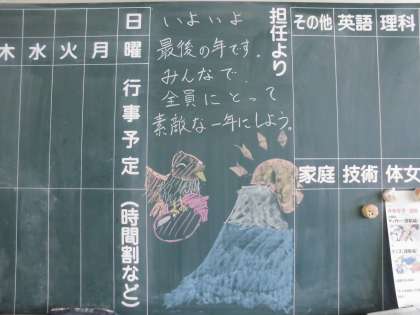 その他 英語 理科
家庭 技術 体女
担任より
いよいよ
最後の年です.
みんなで.
全員にとって
素敵な一年にしよう。
日曜 行事予定(時間割など)
月
火
水
木